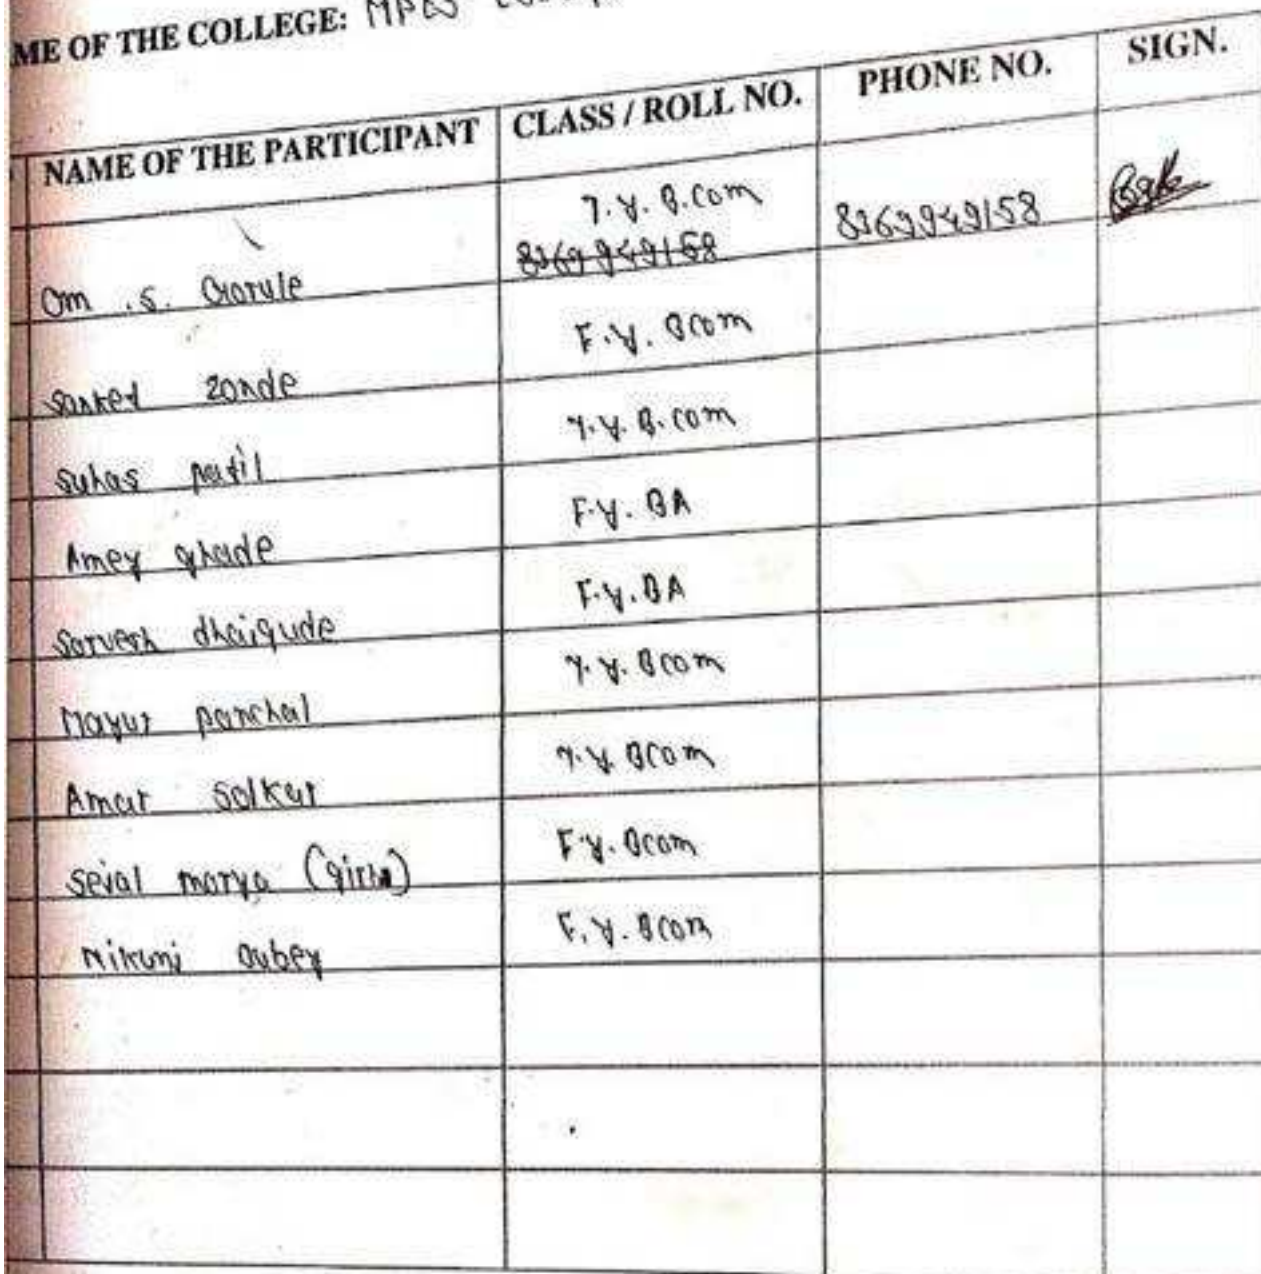 ME OF THE COLLEGE: MPES
NAME OF THE PARTICIPANT CLASS / ROLL NO. PHONE NO. SIGN.
Om . S. Gorule T.Y. B.com 8369949158
8369949158
Sanket zonde F.Y. Bcom
Suhas patil T.Y. B.com
Amey ghade F.Y. BA
Sarvesh dhaigude F.Y. BA
Mayur panchal T.Y. Bcom
Amar Solkar T.Y. Bcom
Sejal morya (girls) F.Y. Bcom
Nikunj Dubey F.Y. Bcom